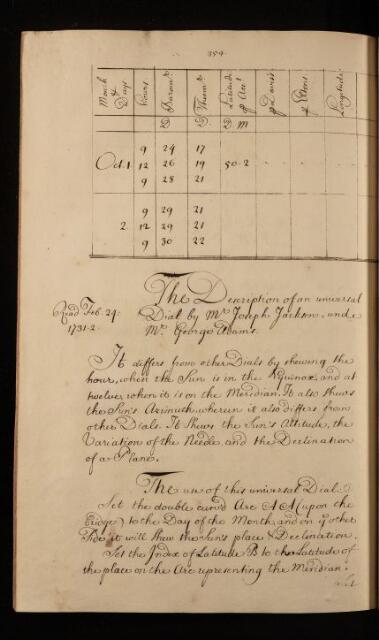 359.
Month & Days Hours Barom.r Therm.r Latitude Longitude
D. M
9 29 17
Oct. 1 12 26 19 50.2
9 28 21
9 29 21
2. 12 29 21
9 30 22
The Description of an universal
Read Feb. 24. Dial by Mr. Joseph Jackson, and
1731-2. Mr. George Adams.
It differs from other Dials by shewing the
hour, when the Sun is in the Equinox, and at
twelve when it is on the Meridian. It also shews
the Sun's Azimuth wherein it also differs from
other Dials. It shews the Sun's Altitude, the
Variation of the Needle, and the Declination
of a Plane.
The use of this universal Dial.
Set the double curv'd Arc A A (upon the
Bridge) to the Day of the Month, and on ye other
Side it will shew the Sun's place & Declination.
Set the Index of Latitude B to the Latitude of
the place on the Arc representing the Meridian.